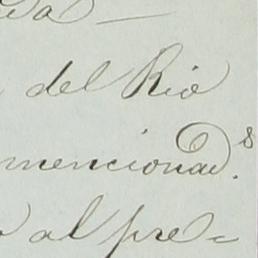 del Rio
mencionad.s
al pre=